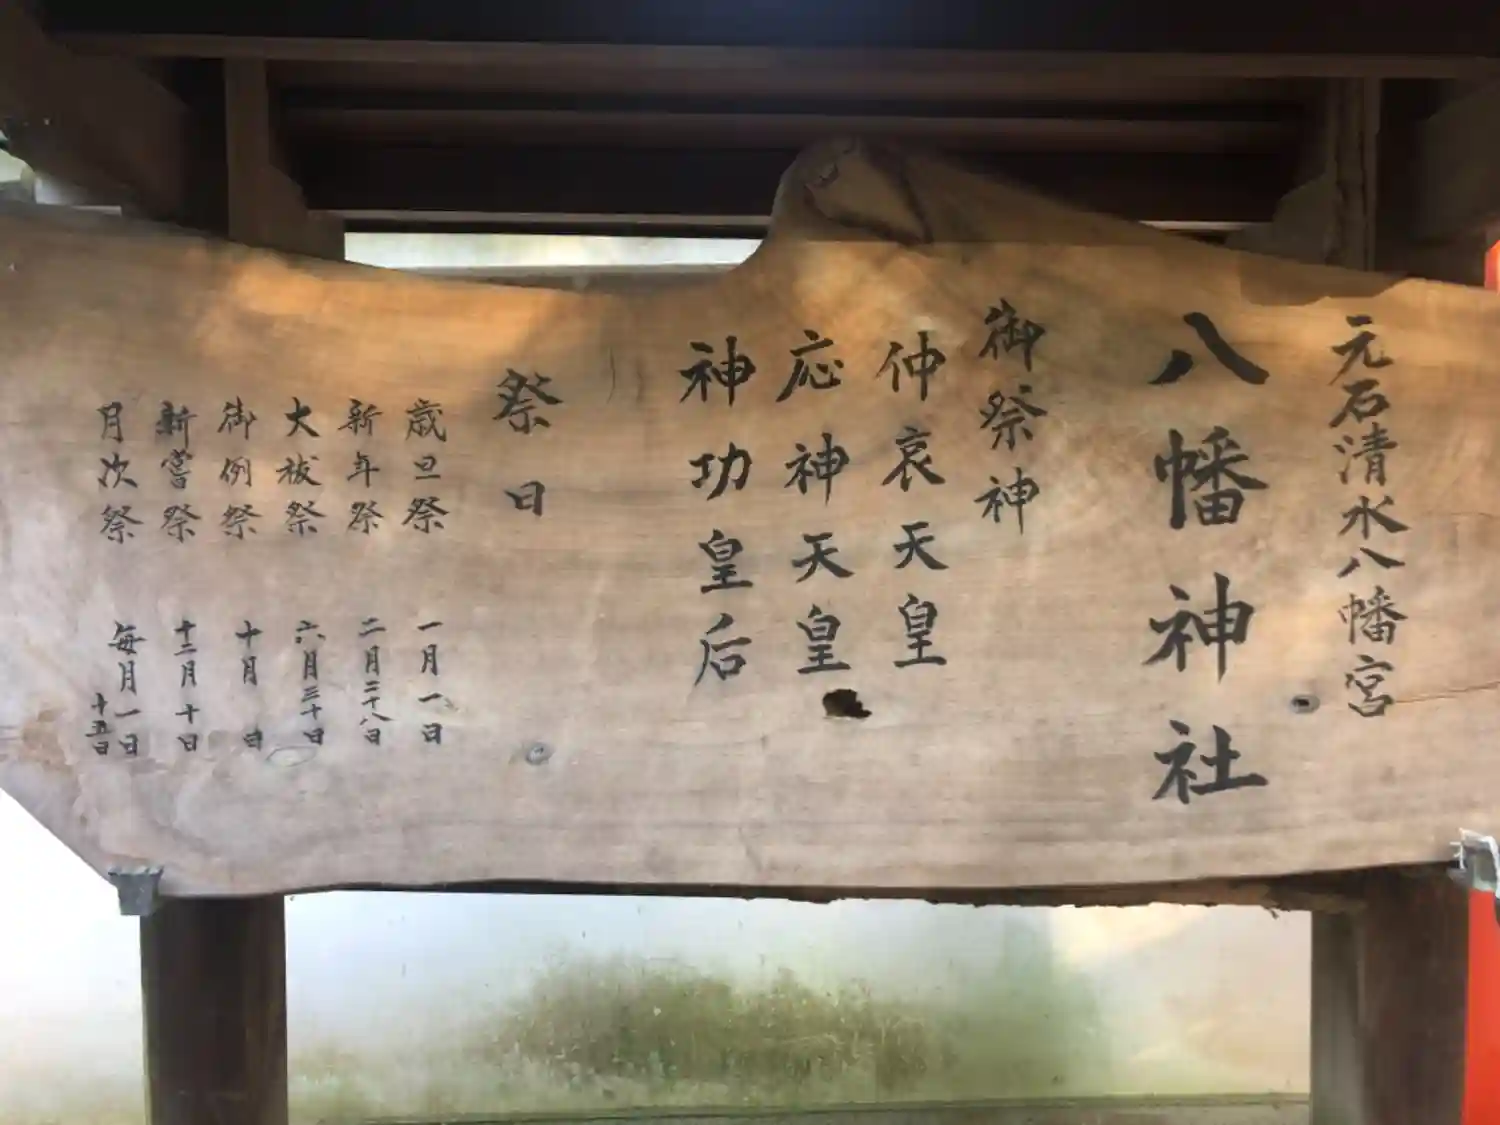 元石清水八幡宮
八幡神社
御祭神
仲哀天皇
応神天皇
神功皇后
祭日
歳旦祭 一月一日
新年祭 二月二十八日
大祓祭 六月三十日
御例祭 十月 日
新嘗祭 十二月十日
月次祭 毎月一日
十五日